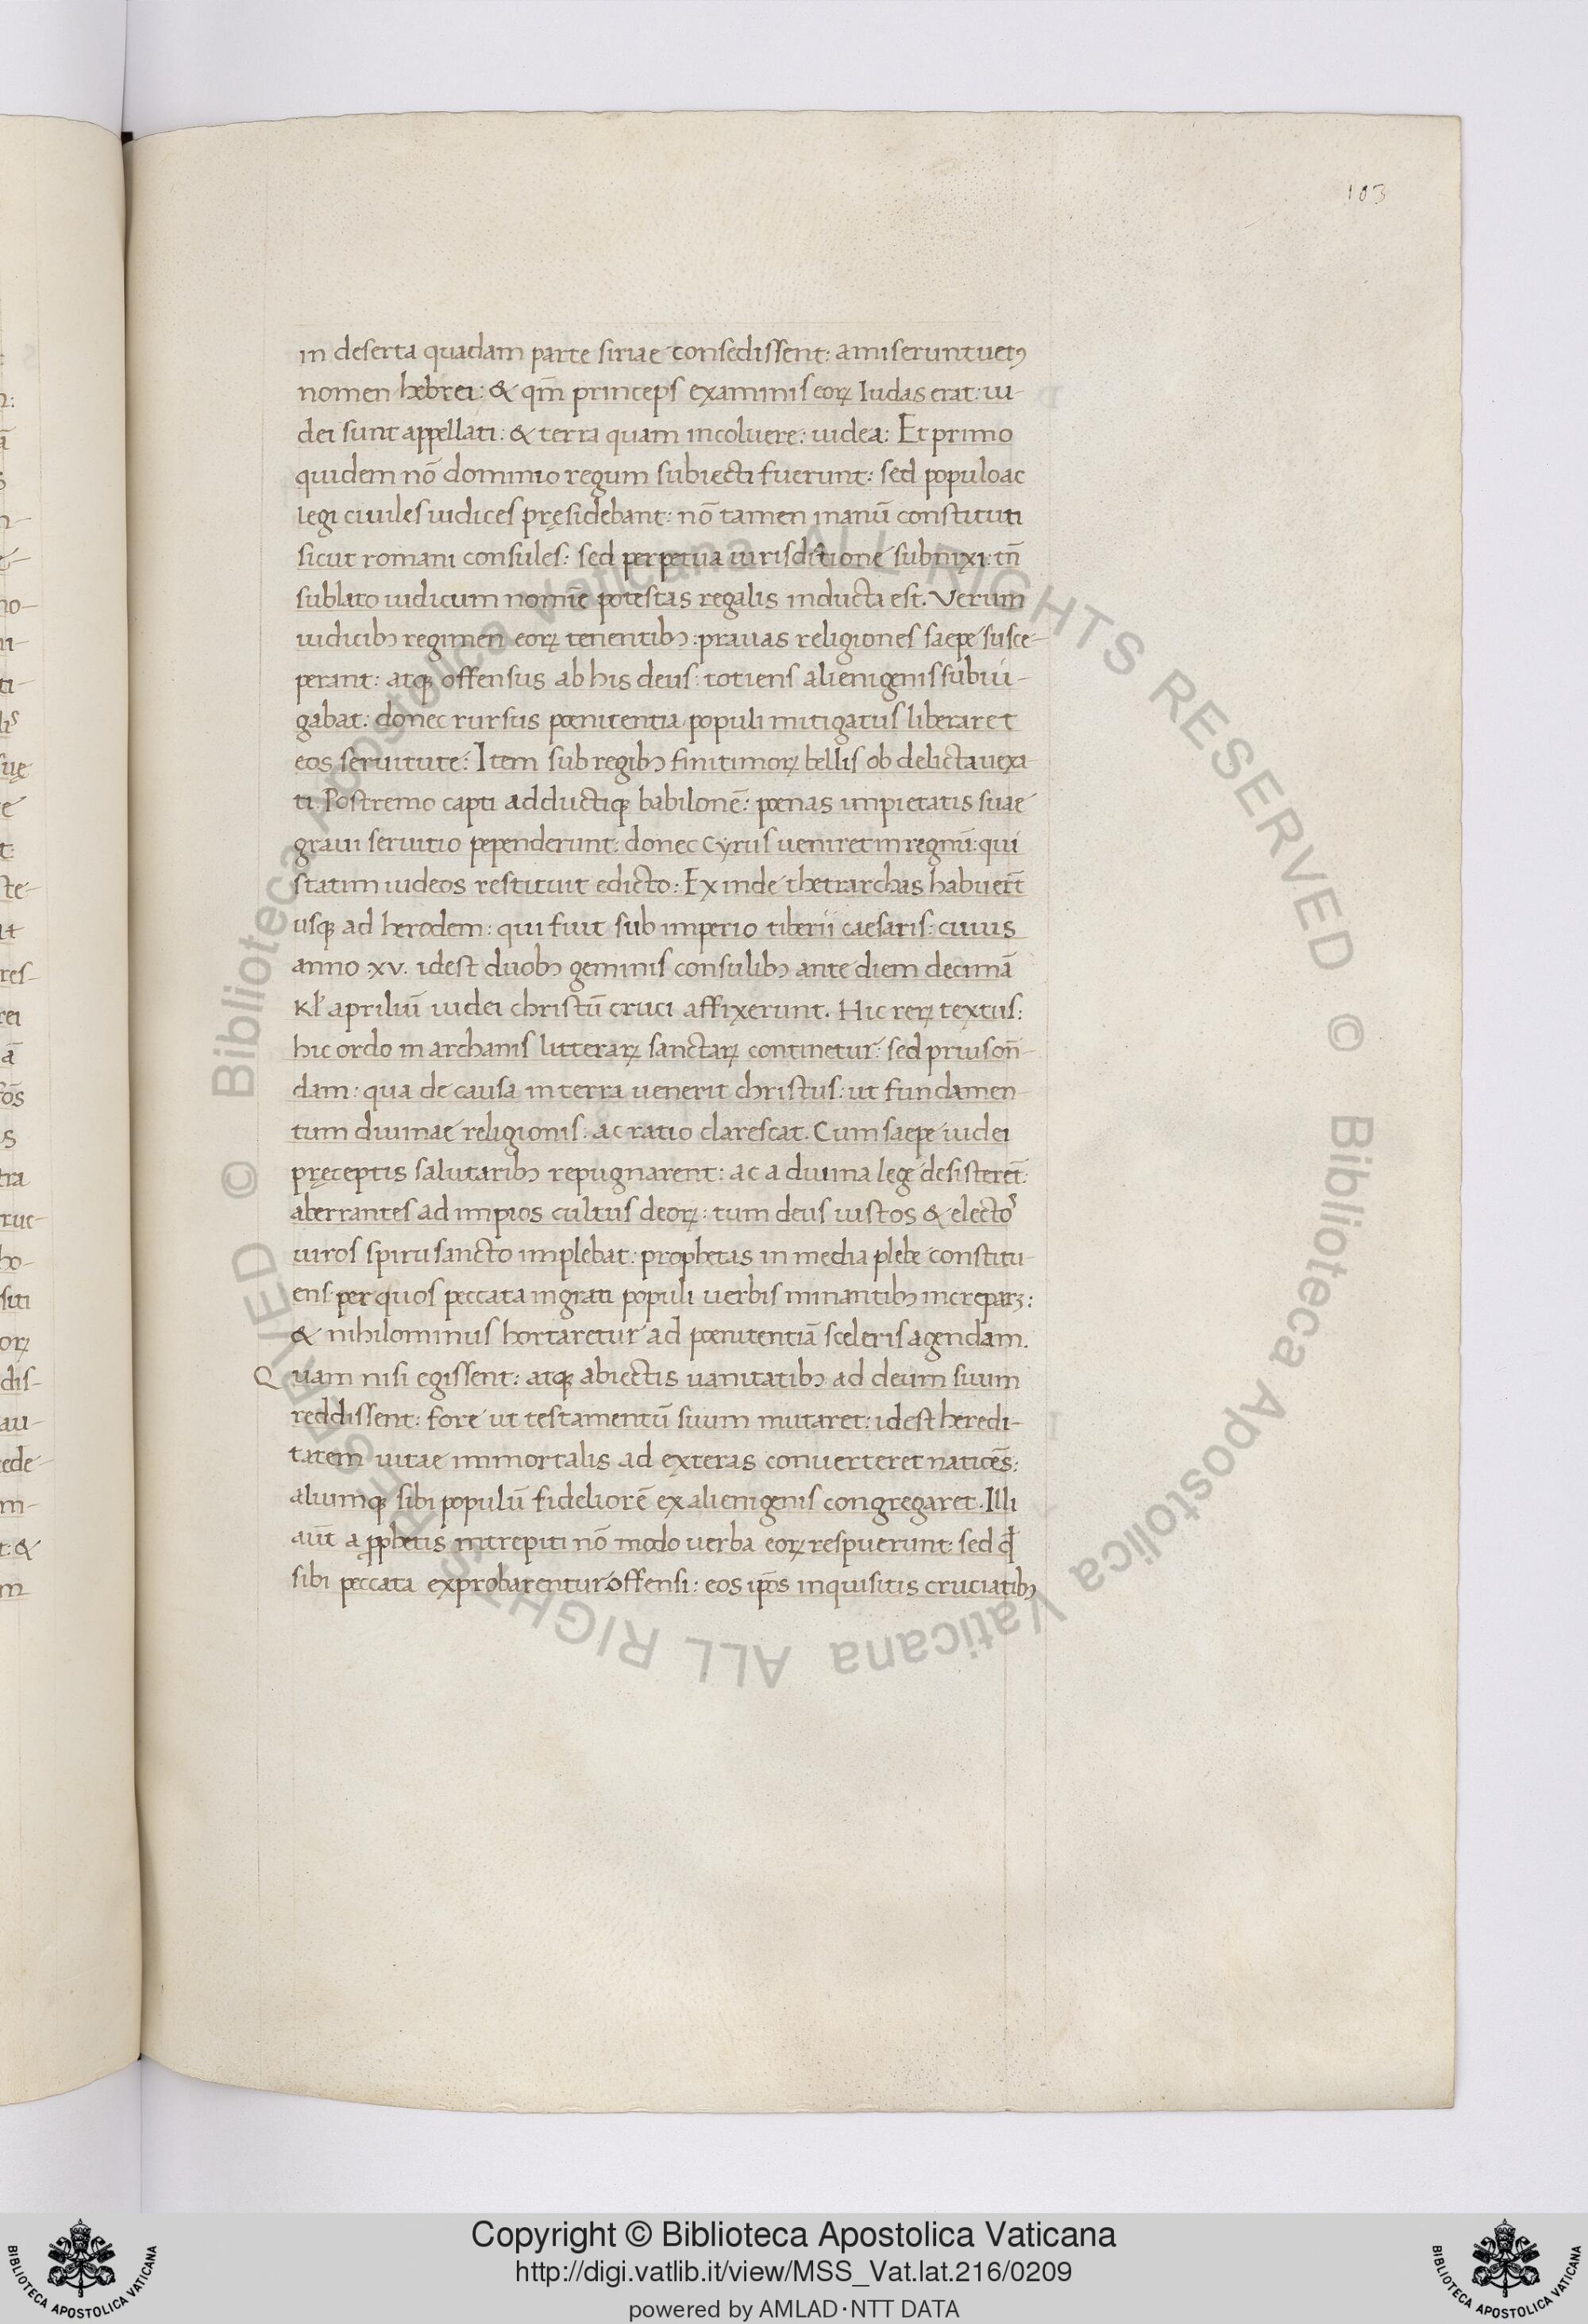 103
in deserta quadam parte siriae consedissent: amiserunt uetꝰ
nomen hebrei: & qm̄ princeps examinis eoꝝ Iudas erat: iu-
dei sunt appellati: & terra quam incoluere: iudea: Et primo
quidem nō dominio regum subiecti fuerunt: sed populo ac
legi ciuiles iudices pręsidebant: nō tamen in anū constituti
sicut romani consules: sed perpetua iurisdictione subnixi: tn̄
sublato iudicum nomīe potestas regalis inducta est. Verum
iudicibꝰ regimen eoꝝ tenentibꝰ: prauas religiones saepe susce-
perant: atqꝫ offensus ab his deus: totiens alienigenis subiu-
gabat: donec rursus poenitentia populi mitigatus liberaret
eos seruitute: Item sub regibꝰ finitimoꝝ bellis ob delicta uexa
ti. Postremo capti adductiqꝫ babilonē: poenas impietatis suae
graui seruitio pependerunt: donec Cyrus ueniret in regnū: qui
statim iudeos restituit edicto: Ex inde thetrarchas habuert̄
usqꝫ ad herodem: qui fuit sub imperio tiberii caesaris: cuius
anno xv. idest duobꝰ geminis consulibꝰ ante diem decimā
kl̄ apriliū iudei christū cruci affixerunt. Hic reꝝ textus:
hic ordo in archanis litteraꝝ sanctaꝝ continetur: sed prius on̄-
dam: qua de causa in terra uenerit christus: ut fundamen
tum diuinae religionis: ac ratio clarescat. Cum saepe iudei
pręceptis salutaribꝰ repugnarent: ac a diuina lege desisteret̄:
aberrantes ad impios cultus deoꝝ: tum deus iustos & electos
uiros spiru sancto implebat: prophetas in media plebe constitu
ens: per quos peccata ingrati populi uerbis minantibꝰ increparꝫ:
& nihilominus hortaretur ad poenitentiā sceleris agendam.
Quam nisi egissent: atqꝫ abiectis uanitatibꝰ ad deum suum
reddissent: fore ut testamentū suum mutaret: idest heredi-
tatem uitae immortalis ad exteras conuerteret naticēs:
aliumqꝫ sibi populū fideliorē ex alienigenis congregaret. Illi
aūt a ꝓphetis increpiti nō modo uerba eoꝝ respuerunt: sed qđ
sibi peccata exprobarentur offensi: eos ip̄os inquisitis cruciatibꝰ
© Biblioteca Apostolica Vaticana ALL RIGHTS RESERVED
© Biblioteca Apostolica Vaticana ALL RIGHTS RESERVED
Copyright © Biblioteca Apostolica Vaticana
http://digi.vatlib.it/view/MSS_Vat.lat.216/0209
powered by AMLAD·NTT DATA
BIBLIOTECA APOSTOLICA VATICANA
BIBLIOTECA APOSTOLICA VATICANA